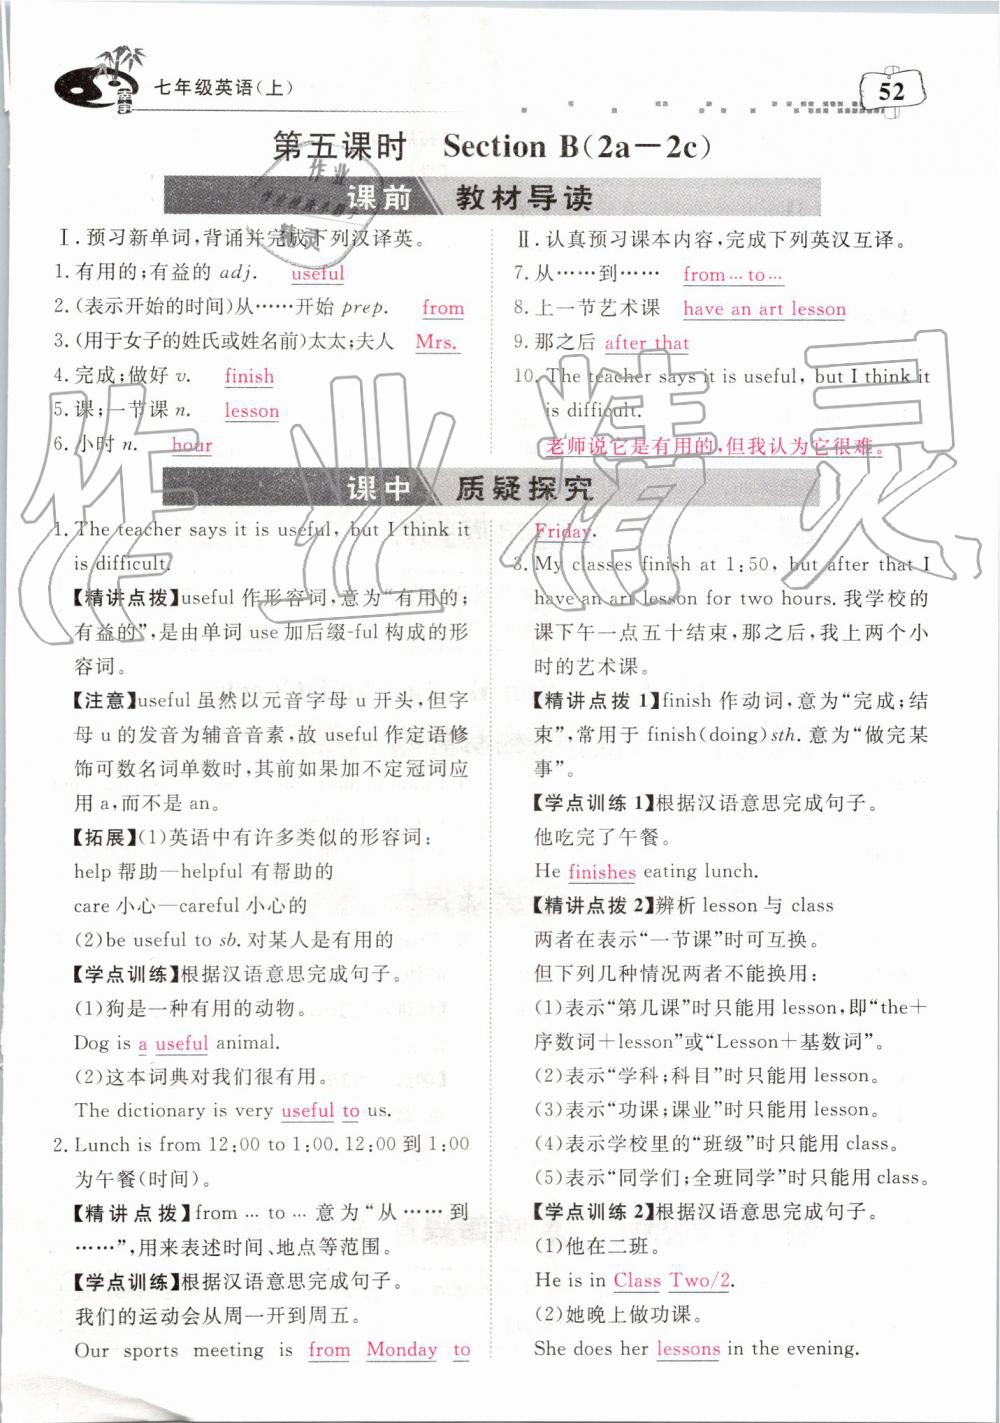 七年级英语(上)
52
第五课时 Section B(2a－2c)
课前 教材导读
Ⅰ. 预习新单词,背诵并完成下列汉译英。
1. 有用的;有益的 adj. useful
2. (表示开始的时间)从……开始 prep. from
3. (用于女子的姓氏或姓名前)太太;夫人 Mrs.
4. 完成;做好 v. finish
5. 课;一节课 n. lesson
6. 小时 n. hour
Ⅱ. 认真预习课本内容,完成下列英汉互译。
7. 从……到…… from … to …
8. 上一节艺术课 have an art lesson
9. 那之后 after that
10. The teacher says it is useful, but I think it
is difficult.
老师说它是有用的,但我认为它很难。
课中 质疑探究
1. The teacher says it is useful, but I think it
is difficult.
【精讲点拨】useful 作形容词,意为“有用的;
有益的”,是由单词 use 加后缀-ful 构成的形
容词。
【注意】useful 虽然以元音字母 u 开头,但字
母 u 的发音为辅音音素,故 useful 作定语修
饰可数名词单数时,其前如果加不定冠词应
用 a,而不是 an。
【拓展】(1)英语中有许多类似的形容词:
help 帮助—helpful 有帮助的
care 小心—careful 小心的
(2)be useful to sb. 对某人是有用的
【学点训练】根据汉语意思完成句子。
(1)狗是一种有用的动物。
Dog is a useful animal.
(2)这本词典对我们很有用。
The dictionary is very useful to us.
2. Lunch is from 12:00 to 1:00. 12:00 到 1:00
为午餐(时间)。
【精讲点拨】from … to … 意为“从……到
……”,用来表述时间、地点等范围。
【学点训练】根据汉语意思完成句子。
我们的运动会从周一开到周五。
Our sports meeting is from Monday to
Friday.
3. My classes finish at 1:50, but after that I
have an art lesson for two hours. 我学校的
课下午一点五十结束,那之后,我上两个小
时的艺术课。
【精讲点拨 1】finish 作动词,意为“完成;结
束”,常用于 finish(doing)sth. 意为“做完某
事”。
【学点训练 1】根据汉语意思完成句子。
他吃完了午餐。
He finishes eating lunch.
【精讲点拨 2】辨析 lesson 与 class
两者在表示“一节课”时可互换。
但下列几种情况两者不能换用:
(1)表示“第几课”时只能用 lesson,即“the＋
序数词＋lesson”或“Lesson＋基数词”。
(2)表示“学科;科目”时只能用 lesson。
(3)表示“功课;课业”时只能用 lesson。
(4)表示学校里的“班级”时只能用 class。
(5)表示“同学们;全班同学”时只能用 class。
【学点训练 2】根据汉语意思完成句子。
(1)他在二班。
He is in Class Two/2.
(2)她晚上做功课。
She does her lessons in the evening.
作业精灵